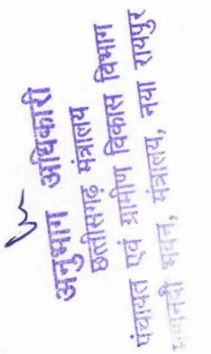 अनुभाग अधिकारी
छत्तीसगढ़ मंत्रालय
पंचायत एवं ग्रामीण विकास विभाग
भवन, मंत्रालय, नया रायपुर